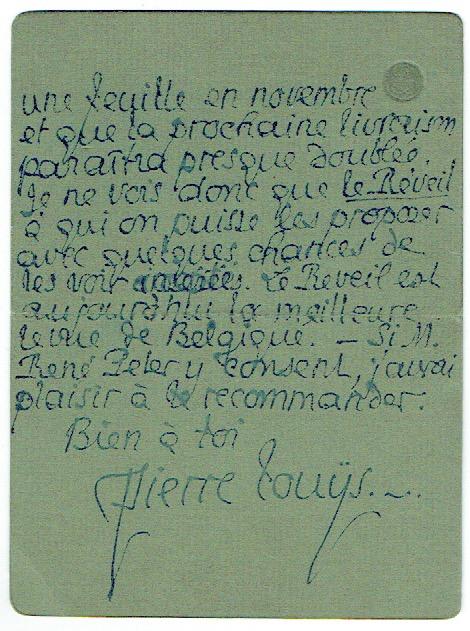 une feuille en novembre
et que la prochaine livraison
paraîtra presque doublée.
Je ne vois donc que le Réveil
à qui on puisse les proposer
avec quelques chances de
les voir insérés. Le Réveil est
aujourd'hui la meilleure
revue de Belgique. — Si M.
René Peter y consent, j'aurai
plaisir à le recommander.
Bien à toi
Pierre Louÿs...